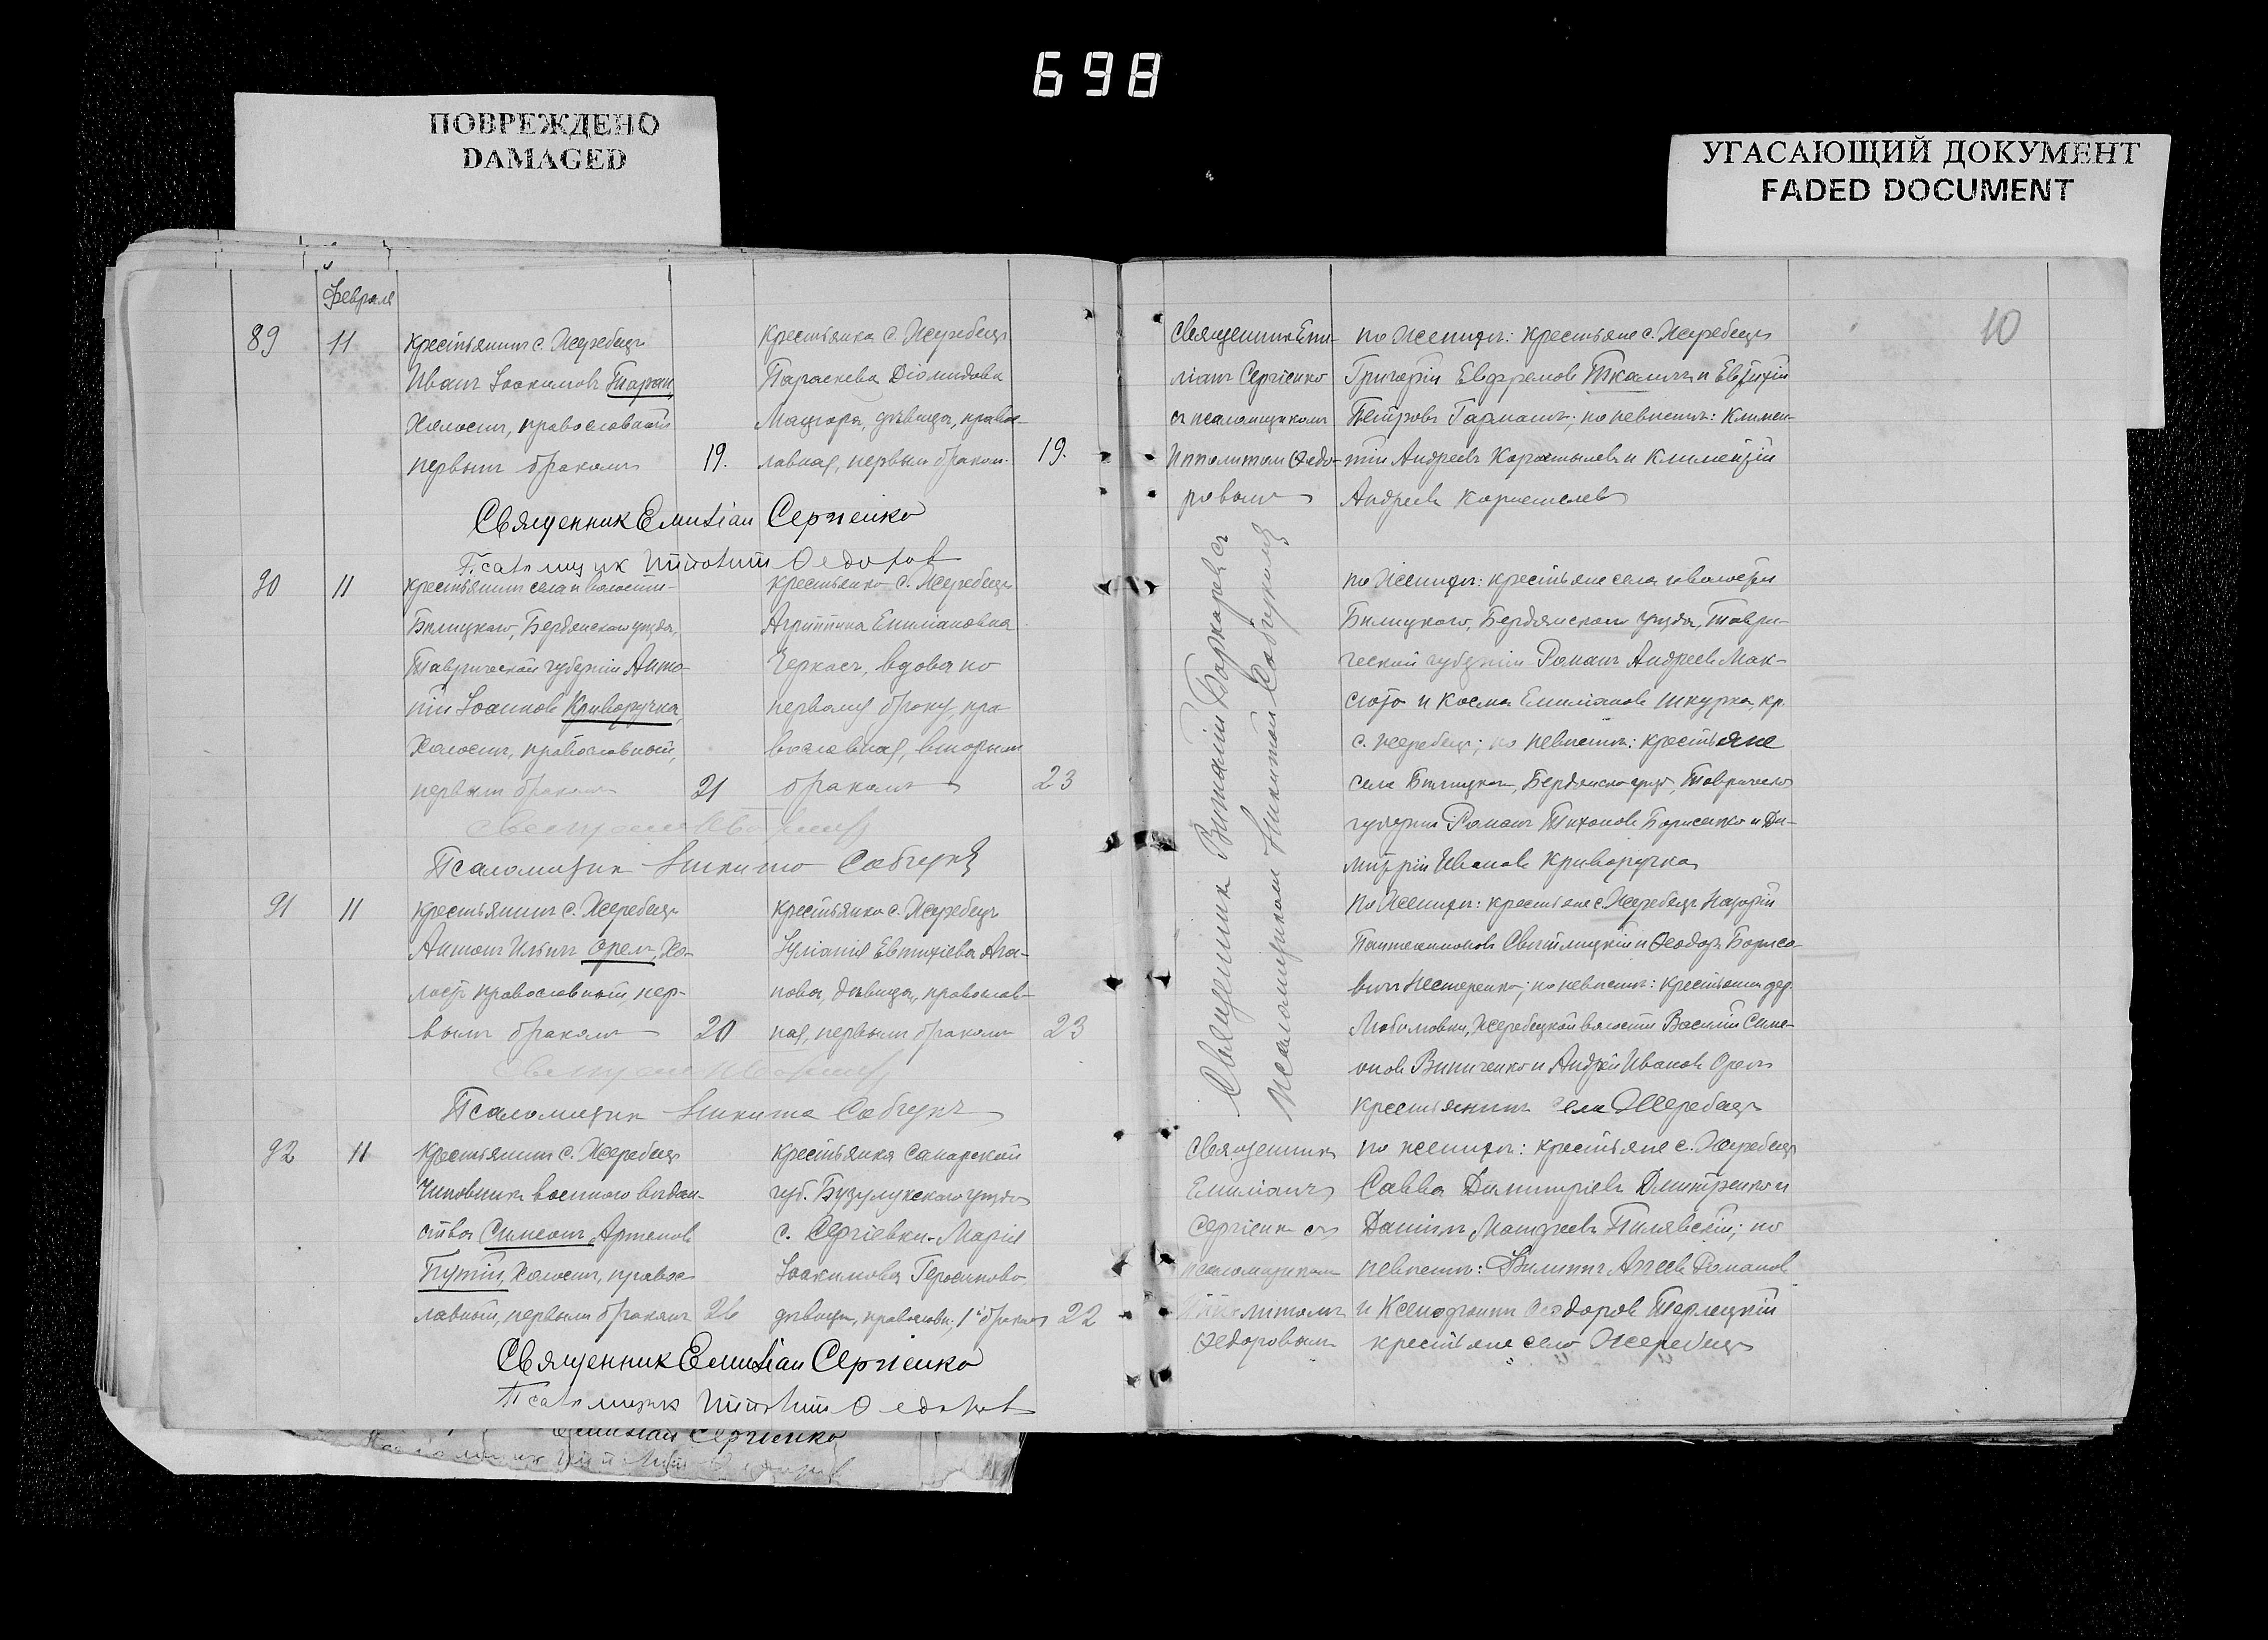 698
ПОВРЕЖДЕНО
DAMAGED
УГАСАЮЩИЙ ДОКУМЕНТ
FADED DOCUMENT
10
Февраля
89
11
Крестьянинъ с. Жеребца
Иванъ Іоакимовъ Таран,
Холостъ, православный
первымъ бракомъ
19.
Крестьянка с. Жеребца
Параскева Діомидова
Мащора, дѣвица, правос-
лавная, первым браком.
19.
Священник Еми-
ліанъ Сергіенко
съ псаломщикомъ
Ипполитом Ѳедо-
ровымъ
по Женихѣ: крестьяне с. Жеребца
Григорій Евфремовъ Ткаличъ и Евтихій
Петровъ Гармашъ; по невѣстѣ: Климен-
тій Андреевъ и Климентій
Андреевъ
Священник Емиліан Сергіенко
Псаломщик Ипполит Ѳедоров
90
11
Крестьянинъ села и волости
Бѣлицкаго, Бердянскаго уѣзда,
Таврической губерніи Анто-
ній Іоанновъ Криворучка,
Холостъ, православный,
первым бракомъ
21
Крестьянка с. Жеребца
Агриппина Емиліановна
Черкасъ, вдова по
первому браку, пра-
вославная, вторымъ
бракомъ
23
Священникъ Виталій съ
псаломщикомъ Никитой Собчукомъ
по Женихѣ: крестьяне села и волости
Бѣлицкаго, Бердянскаго уѣзда, Таври-
ческой губерніи Романъ Андреевъ Мак-
сюта и Косма Емиліановъ Шкурка кр.
с. Жеребца; по невѣстѣ: крестьяне
села Бѣлицкаго, Бердянскаго уѣзд, Таврическо
губерніи Романъ Тихоновъ Борисенко и Ди-
митрій Ивановъ Криворучка
Псаломщик Никита Собчукъ
91
11
Крестьянинъ с. Жеребца
Антонъ Ильинъ Орел, Хо-
лостъ православный, пер-
вымъ бракомъ
20
Крестьянка с. Жеребца
Іуліанія Евтихіева Ага-
пова, дѣвица, православ-
ная, первымъ бракомъ
23
по Женихѣ: крестьяне с. Жеребца Назарій
Пантелимоновъ Свѣтлицкій и Ѳеодоръ Борисо-
вичъ Нестеренко; по невѣстѣ: крестьянин дер.
Любимовки, Жеребецкой волости Василій Симе-
оновъ Винниченко и Андрей Ивановъ Орелъ
крестьянинъ села Жеребца
Псаломщик Никита Собчукъ
92
11
Крестьянинъ с. Жеребца
Чиновникъ военнаго вѣдом-
ства Симеонъ Артемовъ
Путій, Холостъ, правос-
лавный, первымъ бракомъ
26
Крестьянка Самарской
губ. Бузулукскаго уѣзда
с. Сергіевки Марія
Іоакимова Герасимова
дѣвица, православн. 1ъ бракомъ
22
Священникъ
Емиліанъ
Сергіенко съ
псаломщикомъ
Ипполитомъ
Ѳедоровымъ
по женихѣ: крестьяне с. Жеребца
Савва Димитріевъ Дмитренко и
Даніилъ Матфеевъ Пилявскій; по
невѣстѣ: Филиппъ Агеевъ Романов
и Ксенофонтъ Ѳеодоров Терлецкій
крестьяне село Жеребца
Священник Емиліан Сергіенко
Псаломщик Ипполит Ѳедоров
Емиліан Сергіенко